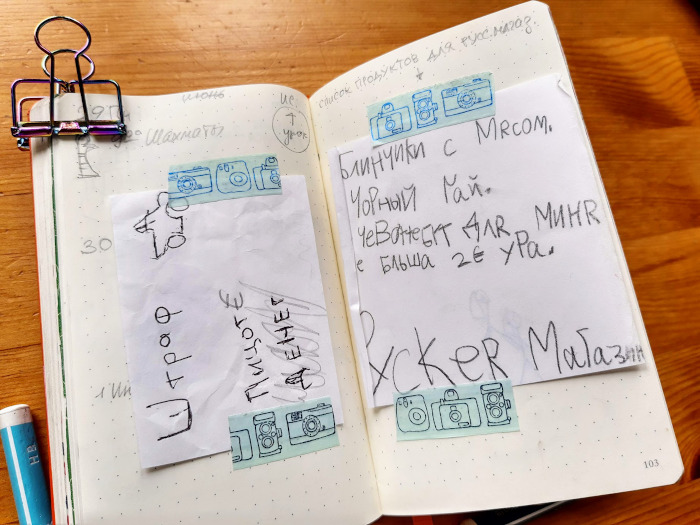 июнь
Шахматы
30
ШТРАФ
ДЕНЕГ
список продуктов для русс.магаз.
БЛИНЧИКИ С МЯСОМ.
ЧОРНЫЙ ЧАЙ.
ДЛЯ МИНЯ
БЛЬША 2€ УРА.
РУСКЕЯ МАГАЗИН
103
HB